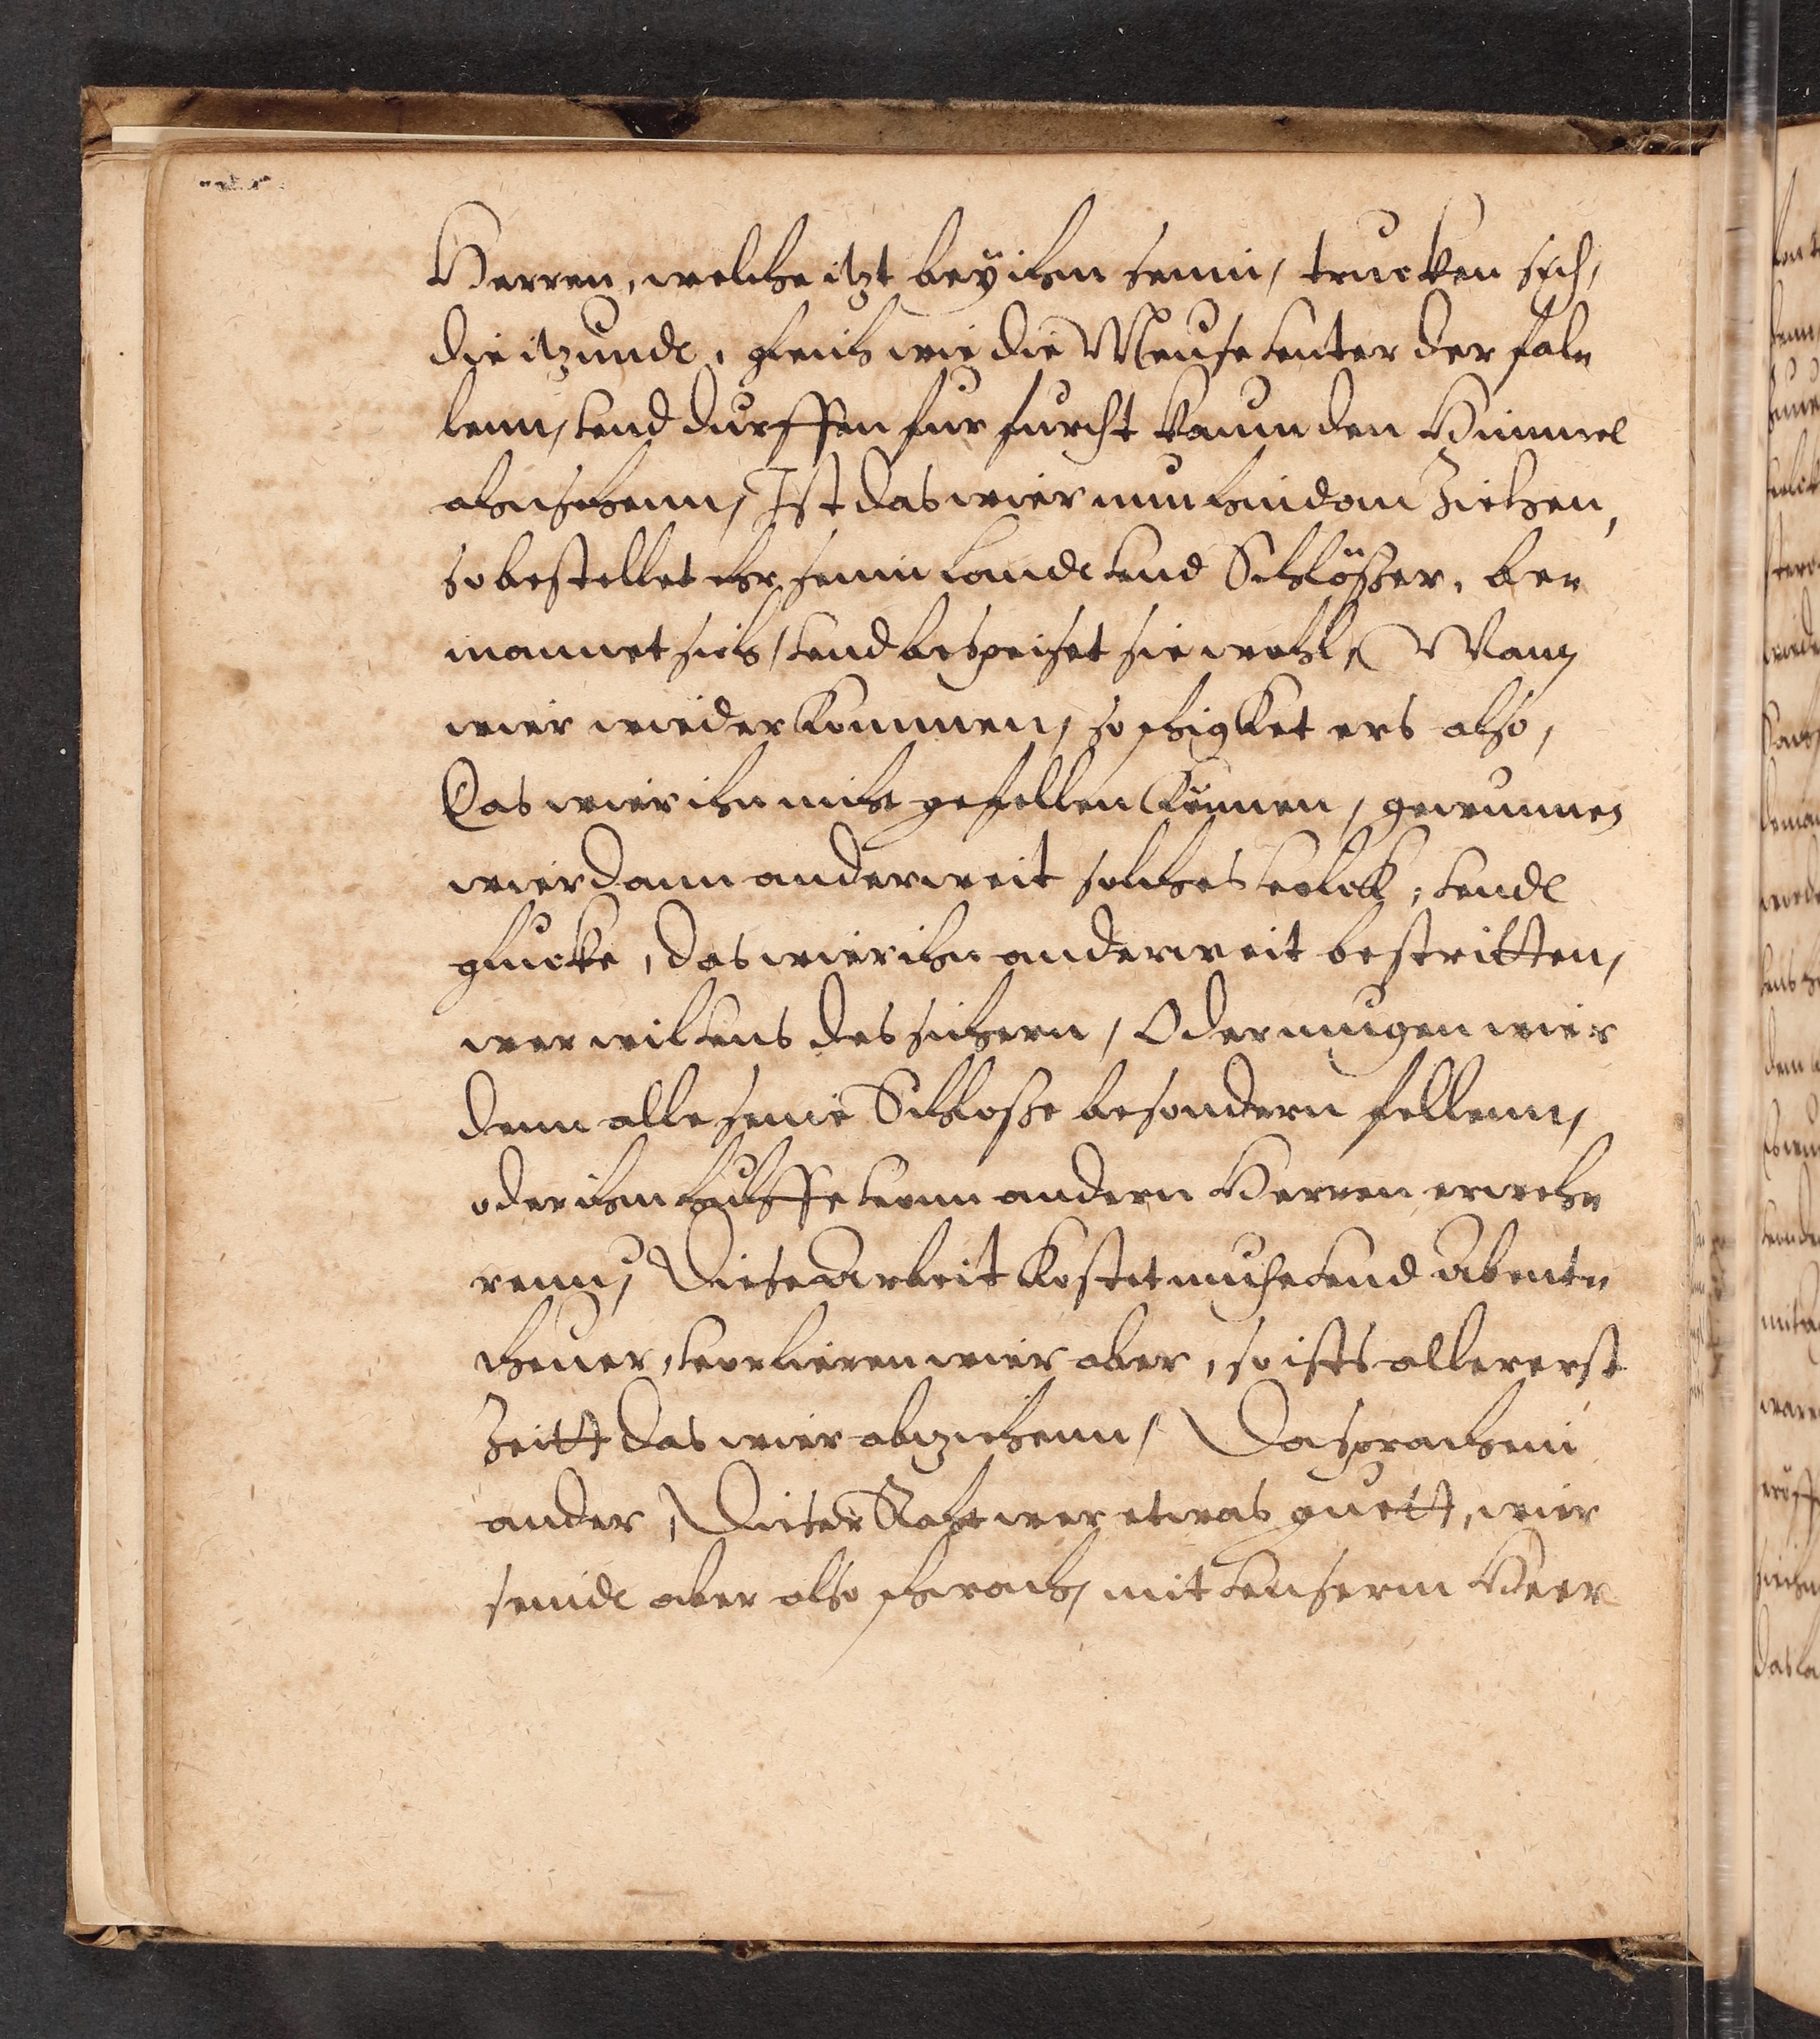 Herren, welche itzt beÿ ihm seinn, trucken sich,
die itzunde, gleich wie die Meuse vnter der fal-
lenn, vnd durffen fur furcht kaum den Himmel
ahnsehenn, Ist das wier nun hindan Ziehen,
so bestellet ehr, sein Lande vnd Schlößer, be-
mannet sich, vnd bespeiset sie wohl, Wan
wier wieder kommen, so schicket ers also,
Das wier ihn nicht gefellen können, gewinnen
wier dann anderweit solches volck, vnde
glucke, das wier ihn anderweit bestritten,
wer wil vns des sichern, Oder mugen wier
denn alle seine Schloße besondern fellenn,
oder ihm hulffe vonn andern Herren erweh-
renn, Diese Arbeit kostet muhe vnd Abent-
heuer, verlieren wier aber, so ists allererst
Zeitt das wier abziehenn, Da sprach ein
ander, Dieser Raht wer etwas guett, wier
seinde aber also schwach, mit vnserm Heer